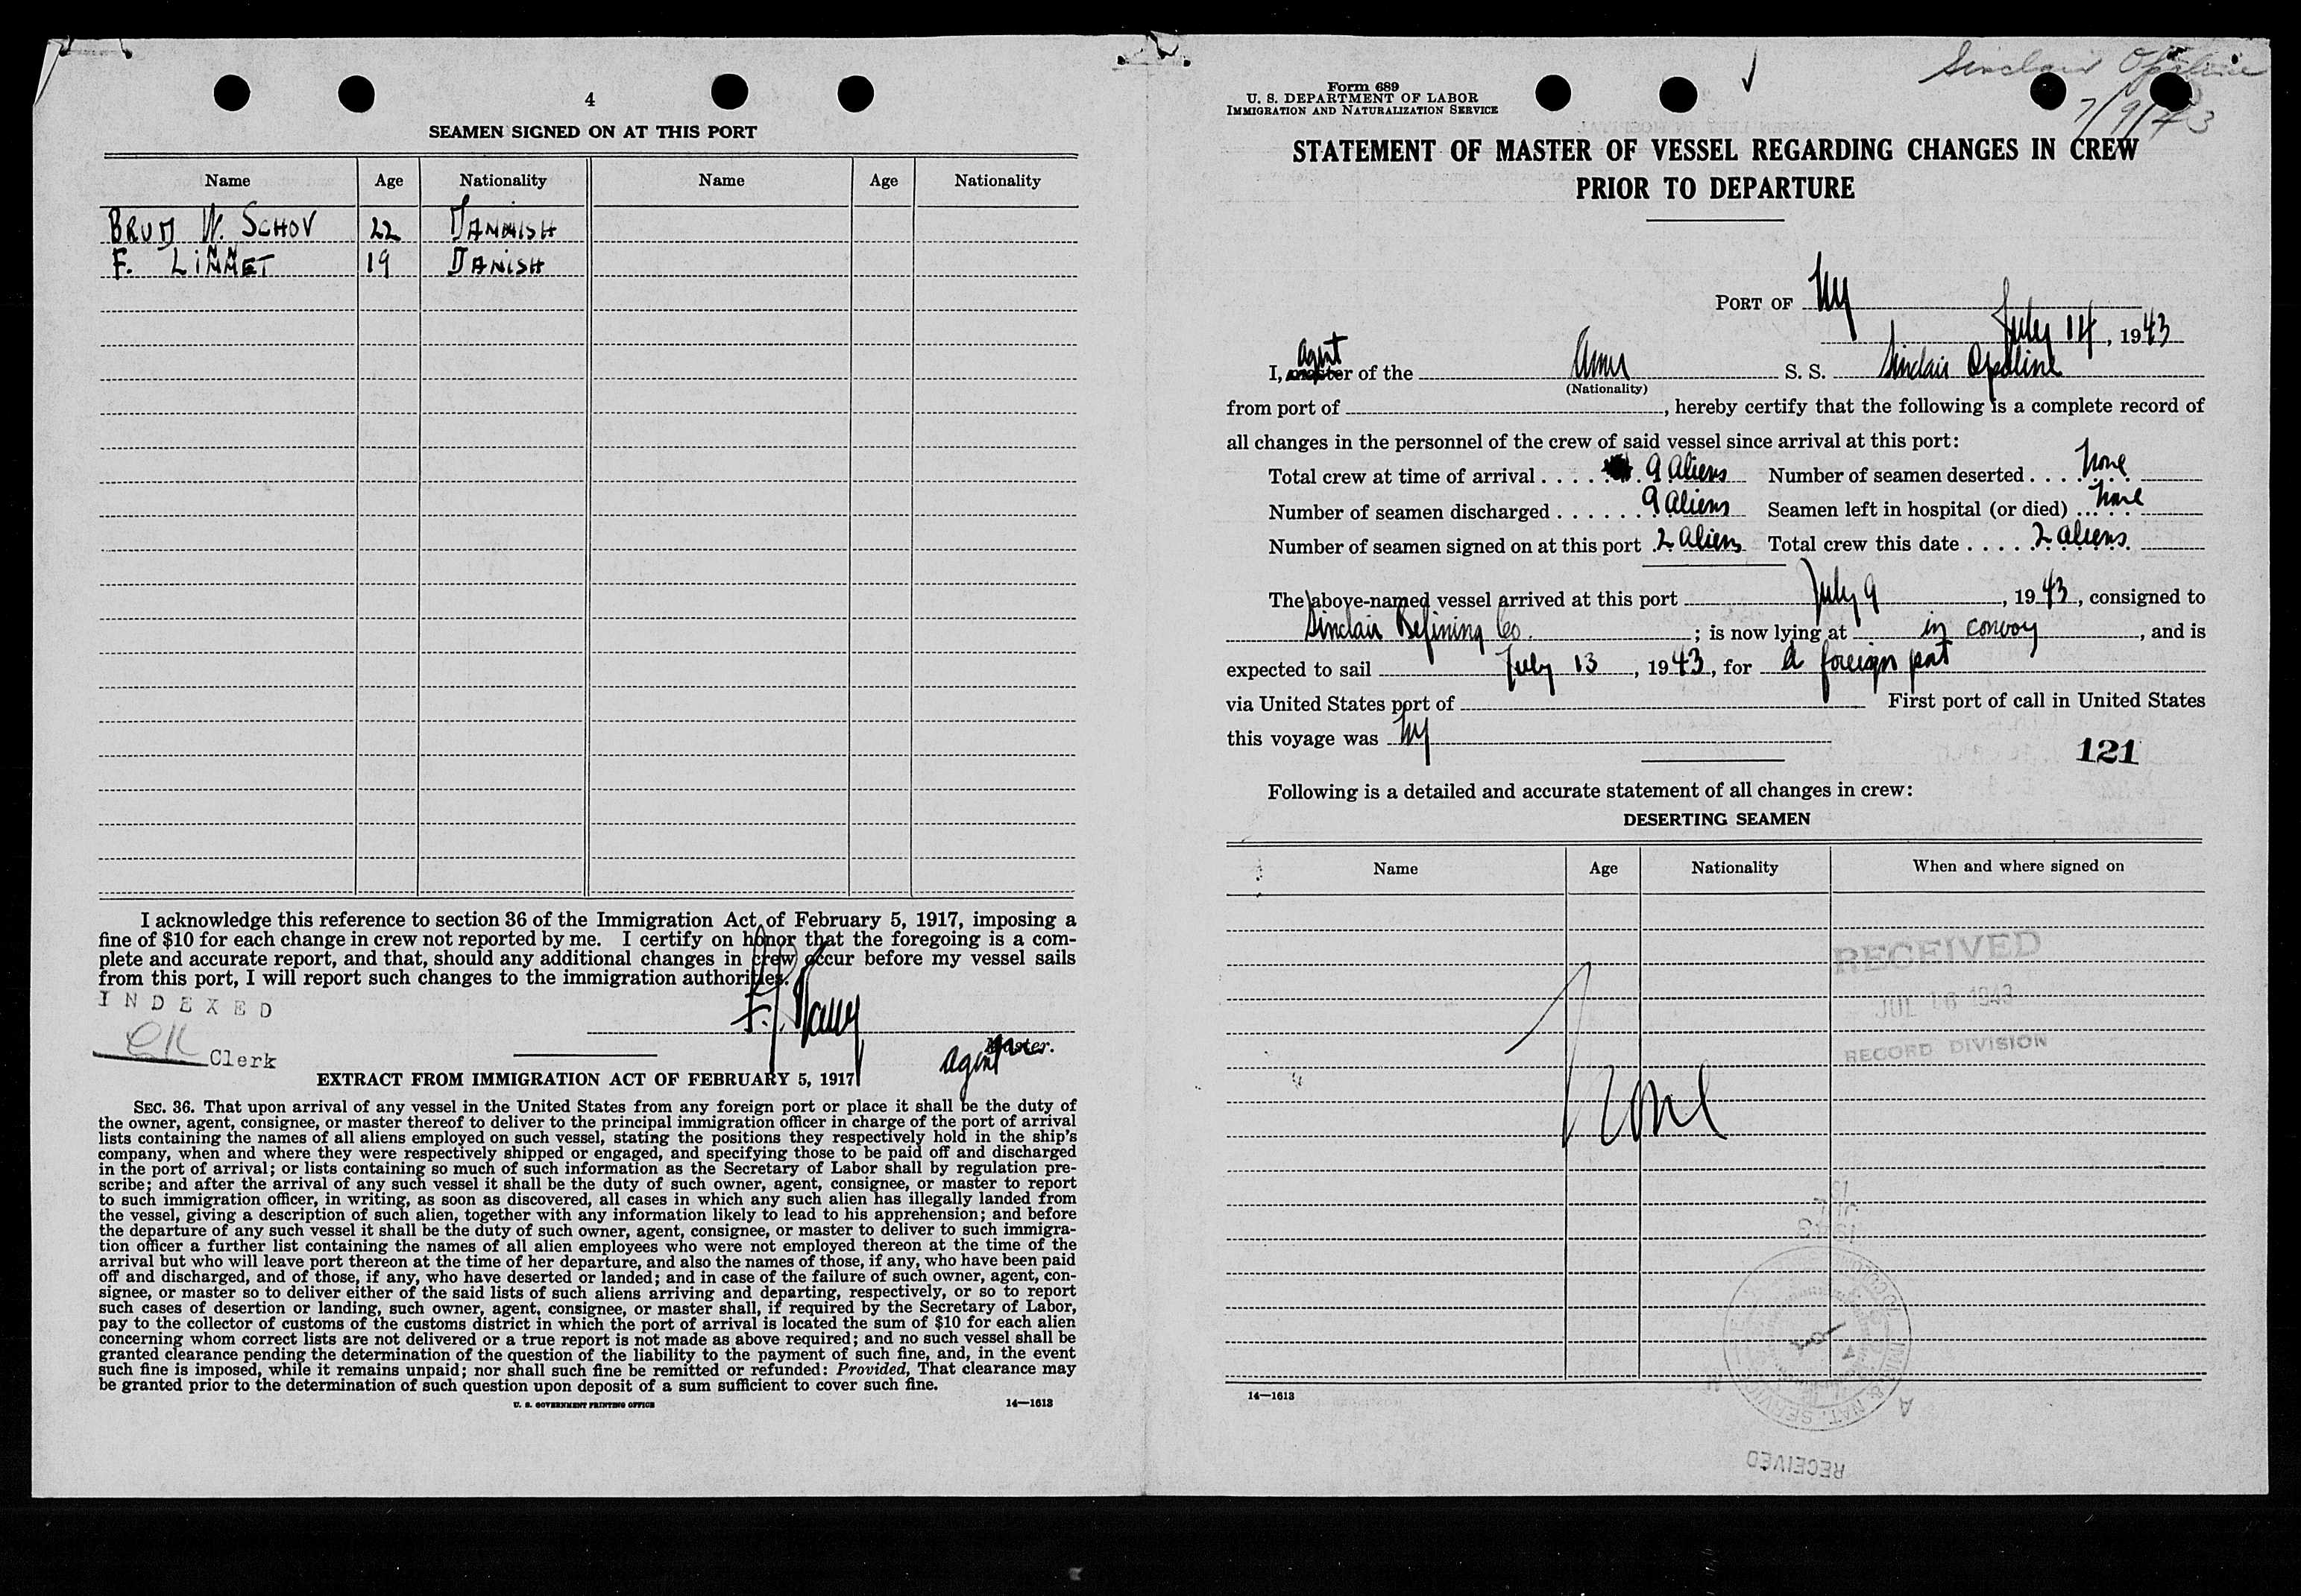 4
SEAMEN SIGNED ON AT THIS PORT
Name Age Nationality Name Age Nationality
W. SCHOV 22 DANNISH
F. LINNET 19 DANISH
I acknowledge this reference to section 36 of the Immigration Act of February 5, 1917, imposing a
fine of $10 for each change in crew not reported by me. I certify on honor that the foregoing is a com-
plete and accurate report, and that, should any additional changes in crew occur before my vessel sails
from this port, I will report such changes to the immigration authorities.
INDEXED
Clerk
Master.
agent
EXTRACT FROM IMMIGRATION ACT OF FEBRUARY 5, 1917
SEC. 36. That upon arrival of any vessel in the United States from any foreign port or place it shall be the duty of
the owner, agent, consignee, or master thereof to deliver to the principal immigration officer in charge of the port of arrival
lists containing the names of all aliens employed on such vessel, stating the positions they respectively hold in the ship's
company, when and where they were respectively shipped or engaged, and specifying those to be paid off and discharged
in the port of arrival; or lists containing so much of such information as the Secretary of Labor shall by regulation pre-
scribe; and after the arrival of any such vessel it shall be the duty of such owner, agent, consignee, or master to report
to such immigration officer, in writing, as soon as discovered, all cases in which any such alien has illegally landed from
the vessel, giving a description of such alien, together with any information likely to lead to his apprehension; and before
the departure of any such vessel it shall be the duty of such owner, agent, consignee, or master to deliver to such immigra-
tion officer a further list containing the names of all alien employees who were not employed thereon at the time of the
arrival but who will leave port thereon at the time of her departure, and also the names of those, if any, who have been paid
off and discharged, and of those, if any, who have deserted or landed; and in case of the failure of such owner, agent, con-
signee, or master so to deliver either of the said lists of such aliens arriving and departing, respectively, or so to report
such cases of desertion or landing, such owner, agent, consignee, or master shall, if required by the Secretary of Labor,
pay to the collector of customs of the customs district in which the port of arrival is located the sum of $10 for each alien
concerning whom correct lists are not delivered or a true report is not made as above required; and no such vessel shall be
granted clearance pending the determination of the question of the liability to the payment of such fine, and, in the event
such fine is imposed, while it remains unpaid; nor shall such fine be remitted or refunded: Provided, That clearance may
be granted prior to the determination of such question upon deposit of a sum sufficient to cover such fine.
U. S. GOVERNMENT PRINTING OFFICE 14—1613
Sinclair Opaline
7/9/43
Form 689
U. S. DEPARTMENT OF LABOR
IMMIGRATION AND NATURALIZATION SERVICE
STATEMENT OF MASTER OF VESSEL REGARDING CHANGES IN CREW
PRIOR TO DEPARTURE
PORT OF NY
July 14, 1943
agent
I, master of the Amer S. S. Sinclair Opaline
(Nationality)
from port of , hereby certify that the following is a complete record of
all changes in the personnel of the crew of said vessel since arrival at this port:
Total crew at time of arrival 9 aliens Number of seamen deserted None
Number of seamen discharged 9 aliens Seamen left in hospital (or died) None
Number of seamen signed on at this port 2 aliens Total crew this date 2 aliens
The above-named vessel arrived at this port July 9, 1943, consigned to
Sinclair Refining Co. ; is now lying at in convoy, and is
expected to sail July 13, 1943, for a foreign port
via United States port of First port of call in United States
this voyage was NY
121
Following is a detailed and accurate statement of all changes in crew:
DESERTING SEAMEN
Name Age Nationality When and where signed on
RECEIVED
JUL 16 1943
RECORD DIVISION
None
1943
NAT. SERVICE
RECEIVED
14—1613